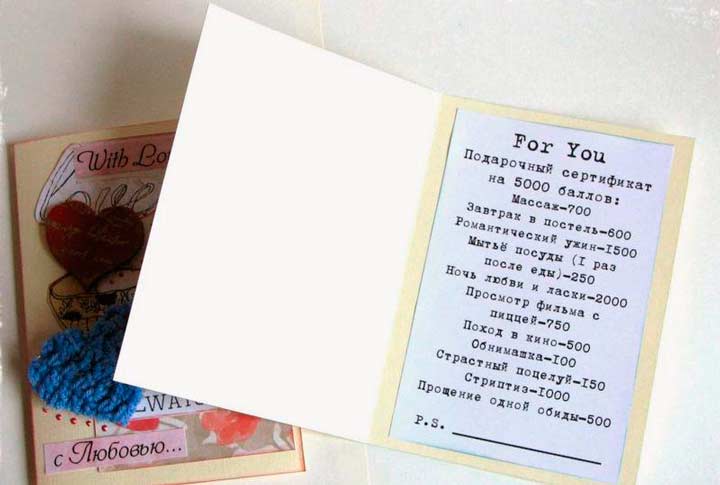 With Lo
For You
Подарочный сертификат
на 5000 баллов:
Массаж-700
Завтрак в постель-600
Романтический ужин-1500
Мытьё посуды (1 раз
после еды)-250
Ночь любви и ласки-2000
Просмотр фильма с
пиццей-750
Поход в кино-500
Обнимашка-100
Страстный поцелуй-150
Стриптиз-1000
Прощение одной обиды-500
P.S.
с Любовью...